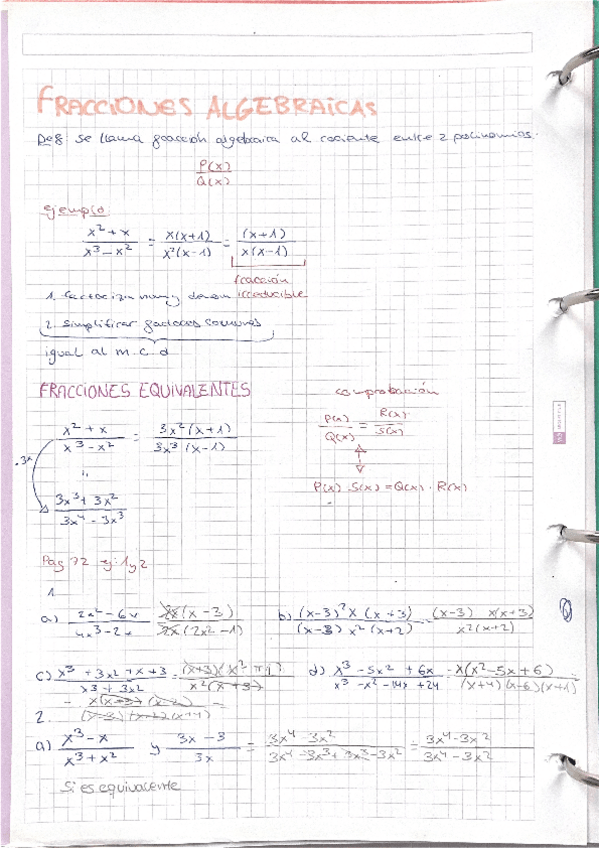 FRACCIONES ALGEBRAICAS
Def: se llama fracción algebraica al cociente entre 2 polinomios.
P(x)/Q(x)
ejemplo
(x²+x)/(x³-x²) = x(x+1)/x²(x-1) = (x+1)/x(x-1)
fracción
irreducible
1. factoriza num y denom
2. simplificar factores comunes
igual al m.c.d
FRACCIONES EQUIVALENTES
comprobación
(x²+x)/(x³-x²) = 3x²(x+1)/3x³(x-1)
P(x)/Q(x) = R(x)/S(x)
.3x
P(x)·S(x) = Q(x)·R(x)
(3x³+3x²)/(3x⁴-3x³)
Pag 72 ej: 1 y 2
1.
a) (2x²-6x)/(4x³-2x) 2x(x-3)/2x(2x²-1)
b) (x-3)²x(x+3)/(x-3)x²(x+2) (x-3)x(x+3)/x²(x+2)
c) (x³+3x²+x+3)/(x³+3x²) = (x+3)(x²+1)/x²(x+3)
d) (x³-5x²+6x)/(x³-x²-14x+24) = x(x²-5x+6)/(x+4)(x-6)(x+1)
2.
a) (x³-x)/(x³+x²) y (3x-3)/3x = (3x⁴-3x²)/(3x⁴-3x³+3x³-3x²) = (3x⁴-3x²)/(3x⁴-3x²)
Si es equivalente